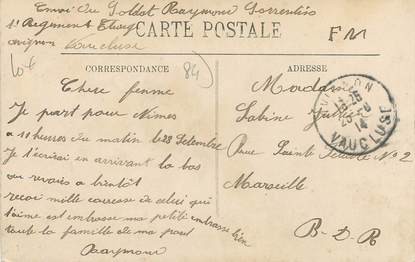 Envoi du Soldat Raymond Sorrentino
1r Régiment
CARTE POSTALE
Avignon Vaucluse
FM
lot
84
CORRESPONDANCE
ADRESSE
Chere femme
Je part pour Nimes
a 11 heures du matin le 28 Setembre
Je t'ecrirai en arrivant la bas
au revoir a bientôt
recoi mille caresse de celui qui
t'aime est embrasse ma petite embrasse bien
toute la famille de ma part
Raaymond
Madame
Sabine
Rue Sainte N° 2
Marseille
B-D-R
AVIGNON
14
VAUCLUSE